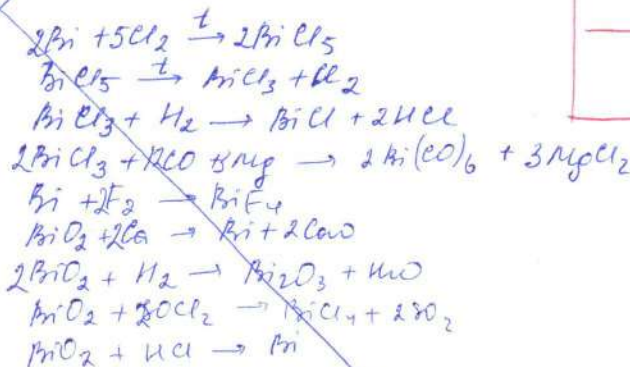 2Bi + 5Cl2 →t 2BiCl5
BiCl5 →t BiCl3 + Cl2
BiCl3 + H2 → BiCl + 2HCl
2BiCl3 + 12CO + 3Mg → 2Bi(CO)6 + 3MgCl2
Bi + 2F2 → BiF4
BiO2 + 2Ca → Bi + 2CaO
2BiO2 + H2 → Bi2O3 + H2O
BiO2 + 2SOCl2 → BiCl4 + 2SO2
BiO2 + HCl → Bi